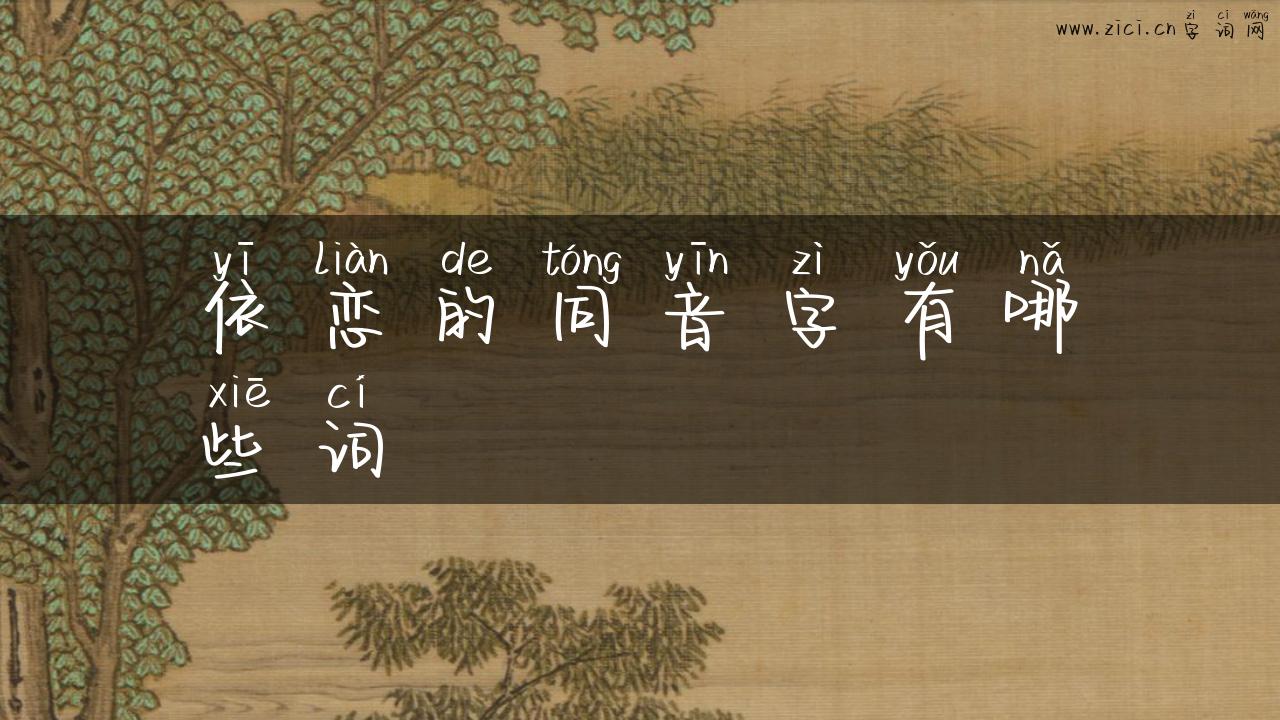 zì cí wǎng
www.zici.cn 字 词 网
yī liàn de tóng yīn zì yǒu nǎ
依 恋 的 同 音 字 有 哪
xiē cí
些 词